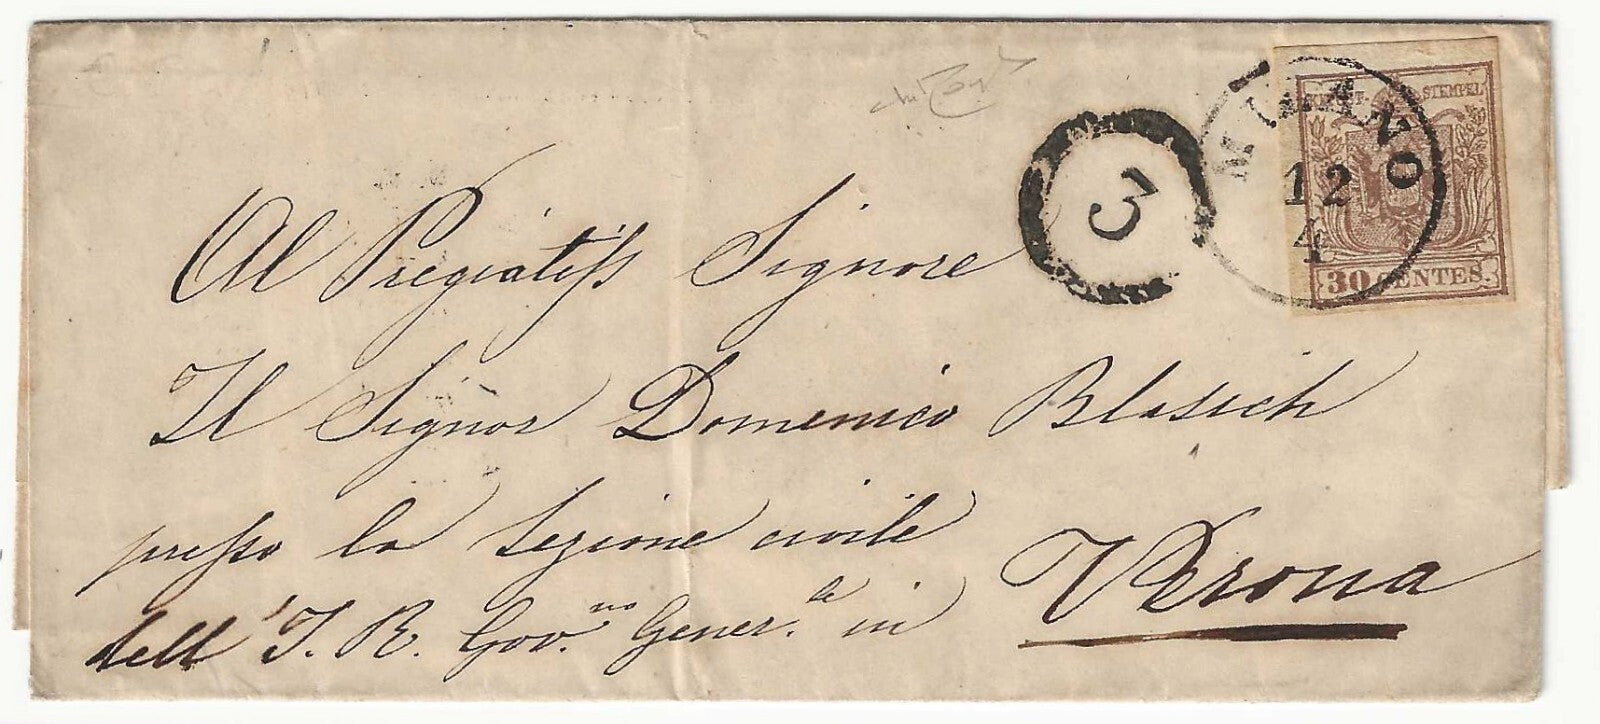 MILANO
12
4
3
STEMPEL
30 CENTES.
Al Pregiatiss Signore
Il Signor Domenico Blasich
presso la Sezione civile
dell' I. R. Gov.no Gener.le in Verona